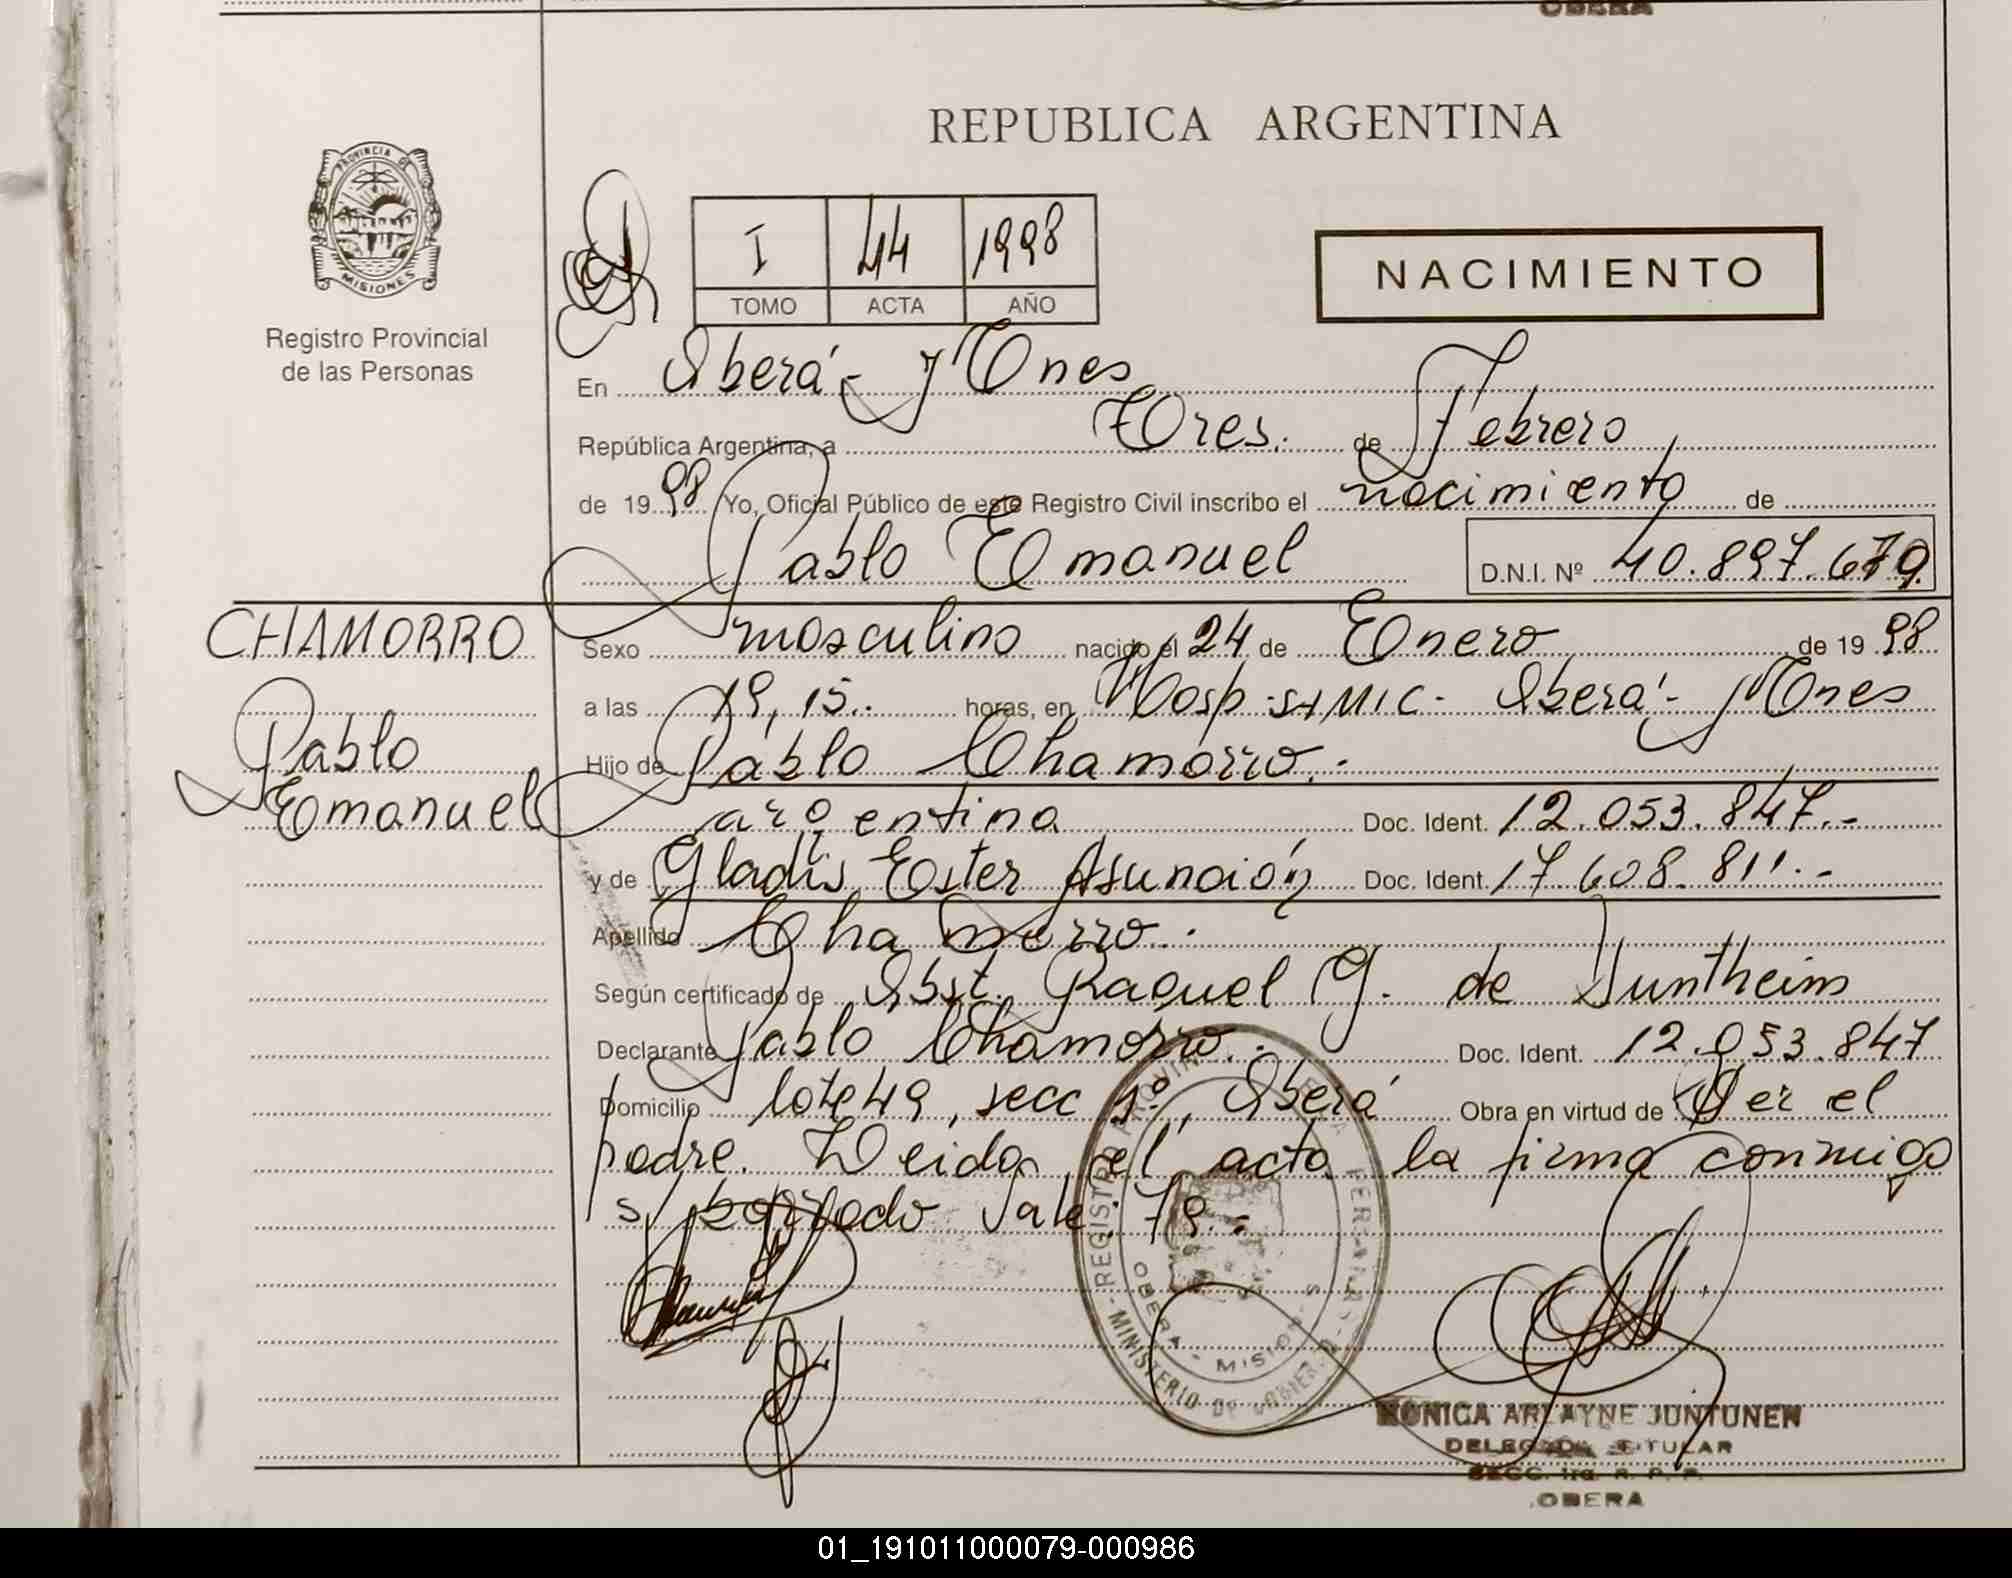 OBERA
REPUBLICA ARGENTINA
PROVINCIA DE
MISIONES
Registro Provincial
de las Personas
I 44 1998
TOMO ACTA AÑO
NACIMIENTO
En Oberá - Mnes
República Argentina, a Tres. de Febrero
de 19 98 Yo, Oficial Público de este Registro Civil inscribo el nacimiento de
Pablo Emanuel D.N.I. Nº 40.897.679
CHAMORRO
Pablo
Emanuel
Sexo masculino nacido el 24 de Enero de 19 98
a las 19,15.- horas, en Hosp. SAMIC - Oberá - Mnes
Hijo de Pablo Chamorro.-
argentina Doc. Ident. 12.053.847.-
y de Gladis Ester Asunción Doc. Ident. 17.608.811.-
Apellido Chamorro.-
Según certificado de Obst. Raquel G. de Duntheim
Declarante Pablo Chamorro.- Doc. Ident. 12.053.847
Domicilio lote 49, secc 1º, Oberá Obra en virtud de Ser el
padre. Leida el acta la firma conmigo
s/ borrado Vale: 79.-
REGISTRO PROVIN
MINISTERIO DE GOBIER
OBERA - MISIO
MONICA ARLAYNE JUNTUNEN
DELEGADA TITULAR
SECC. 1ra. R. P. P.
OBERA
01_191011000079-000986